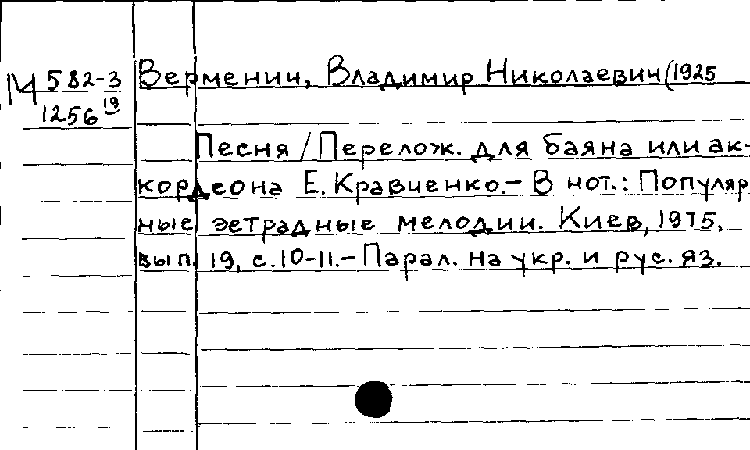 М 582-3 Верменич, Владимир Николаевич (1925
1256 19
Песня / Перелож. для баяна или ак-
кордеона Е. Кравченко.- В нот.: Популяр
ные эстрадные мелодии. Киев, 1975,
вып. 19, с. 10-11.- Парал. на укр. и рус. яз.